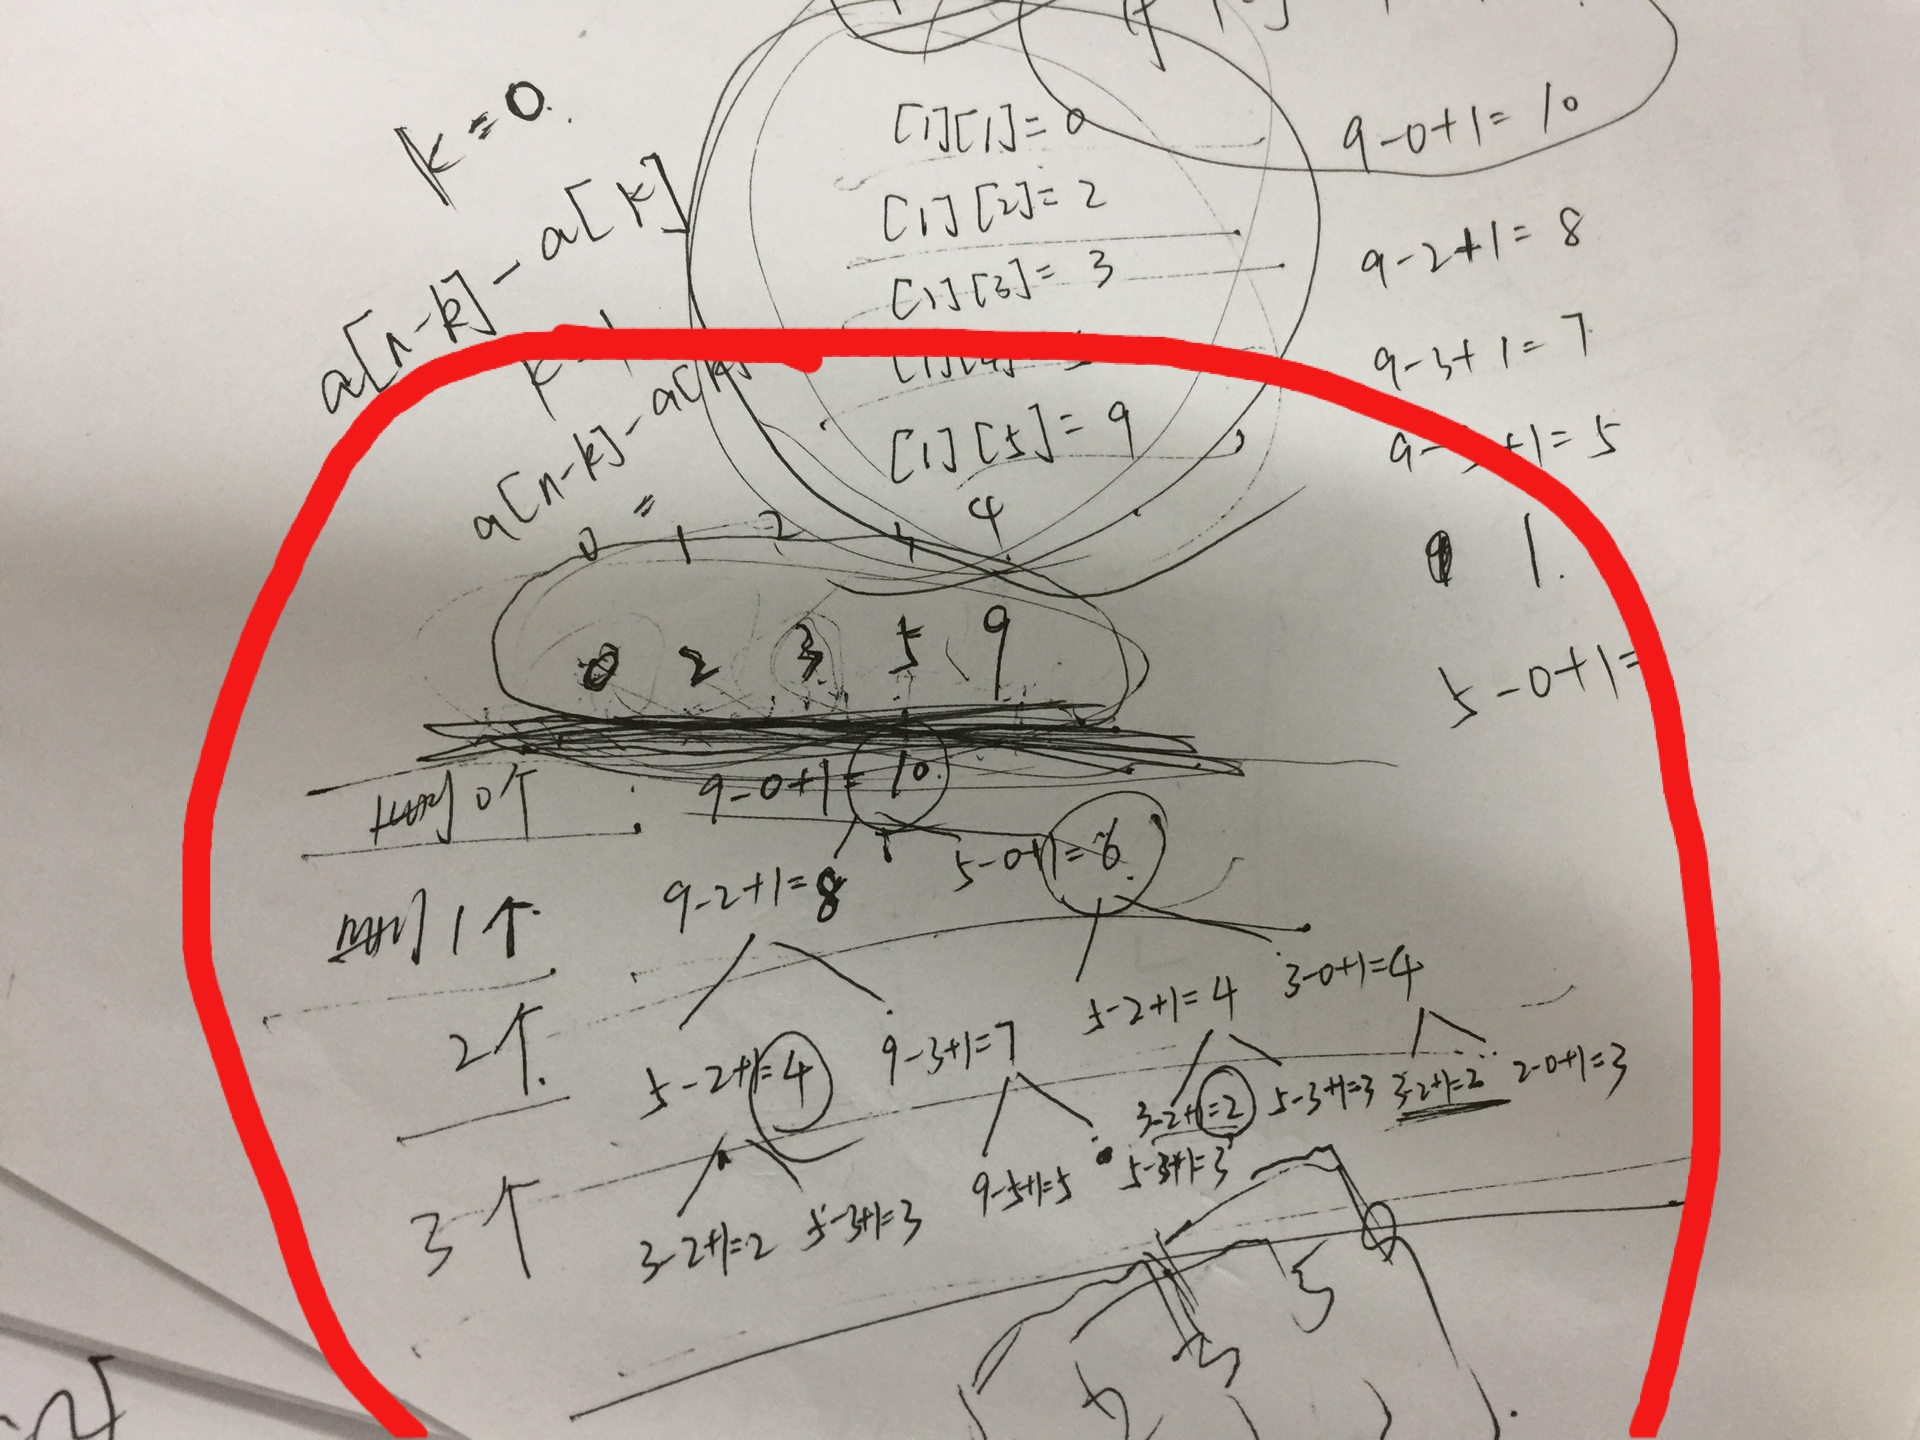 k=0.
a[n-k]-a[k]
[1][1]=0
[1][2]=2
[1][3]=3
[1][5]=9
9-0+1=10
9-2+1=8
9-3+1=7
1.
5-0+1=
a[n-k]-a[k]
=
0 1 2 4
0 2 3 5 9
0个 9-0+1=10.
1个. 9-2+1=8 5-0+1=6.
2个. 5-2+1=4 9-3+1=7 5-2+1=4 3-0+1=4
3-2+1=2 5-3+1=3 3-2+1=2 2-0+1=3
3个 3-2+1=2 5-3+1=3 9-5+1=5 5-3+1=3
5